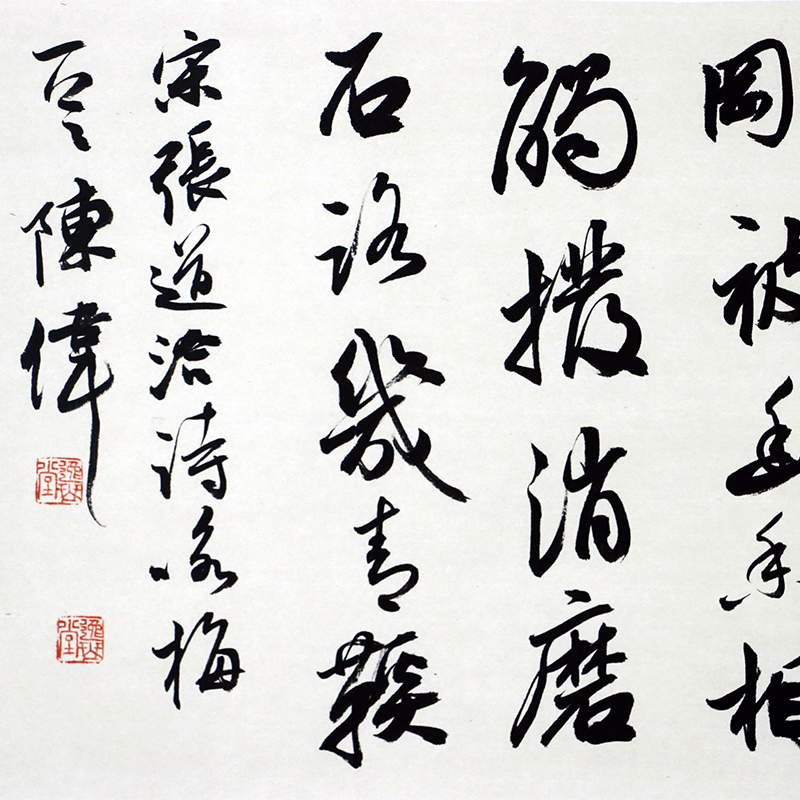 岡被幽香相
觸撥消磨
石路幾青鞵
宋張道洽詩咏梅
陳偉